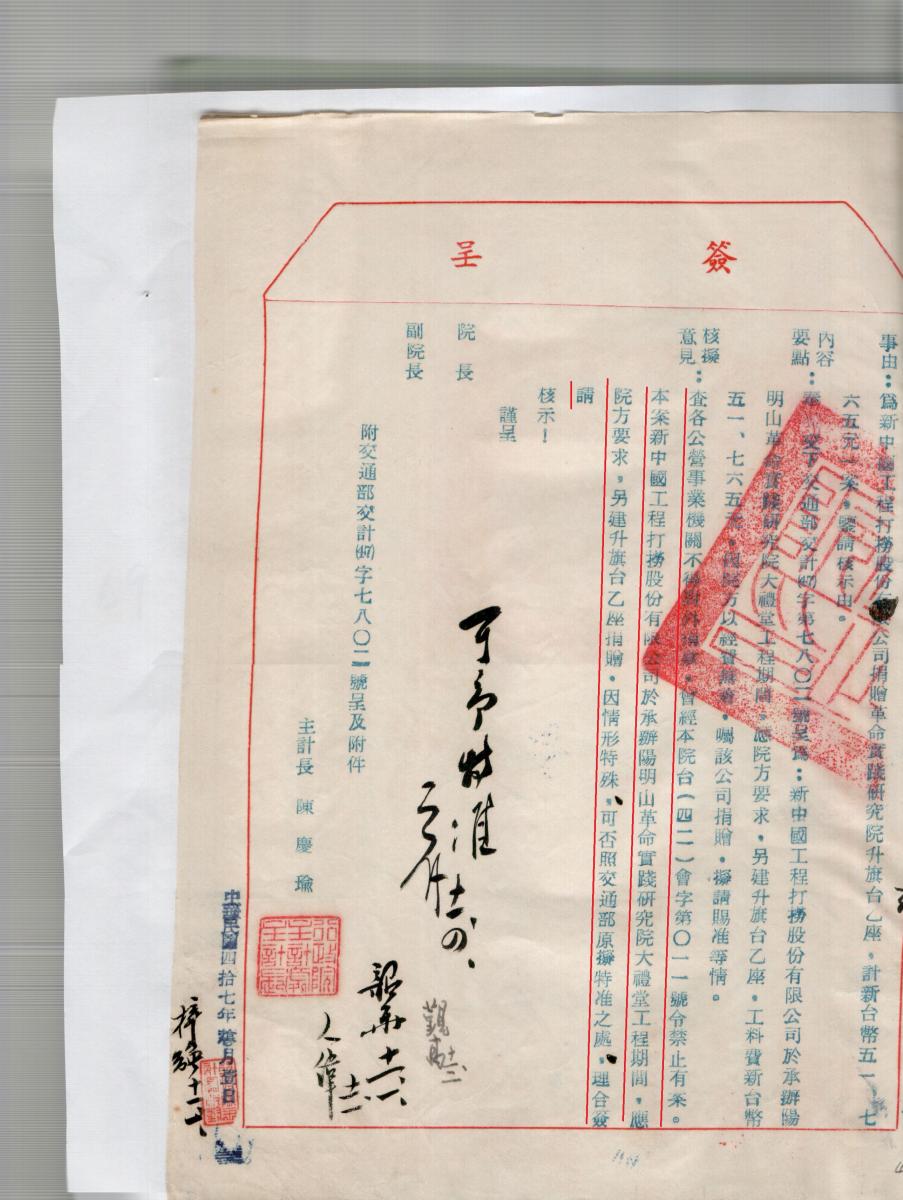 簽呈
事由：為新中國工程打撈股份有限公司捐贈革命實踐研究院升旗台乙座，計新台幣五一、七
六五元一案，鑒請核示由。
內容
要點：奉 交下交通部交計(47)字第七八〇二號呈為：新中國工程打撈股份有限公司於承辦陽
明山革命實踐研究院大禮堂工程期間，應院方要求，另建升旗台乙座，工料費新台幣
五一、七六五元，因院方以經費無着，囑該公司捐贈，擬請賜准等情。
核擬
意見：查各公營事業機關不得對外捐募，曾經本院台（四二）會字第〇一一號令禁止有案。
本案新中國工程打撈股份有限公司於承辦陽明山革命實踐研究院大禮堂工程期間，應
院方要求，另建升旗台乙座捐贈，因情形特殊，可否照交通部原擬特准之處，理合簽
請
核示！
謹呈
院長
副院長
附交通部交計(47)字七八〇二號呈及附件
主計長 陳慶瑜
可予特准
行政院主計處主計長
中華民國四拾七年
月壹日